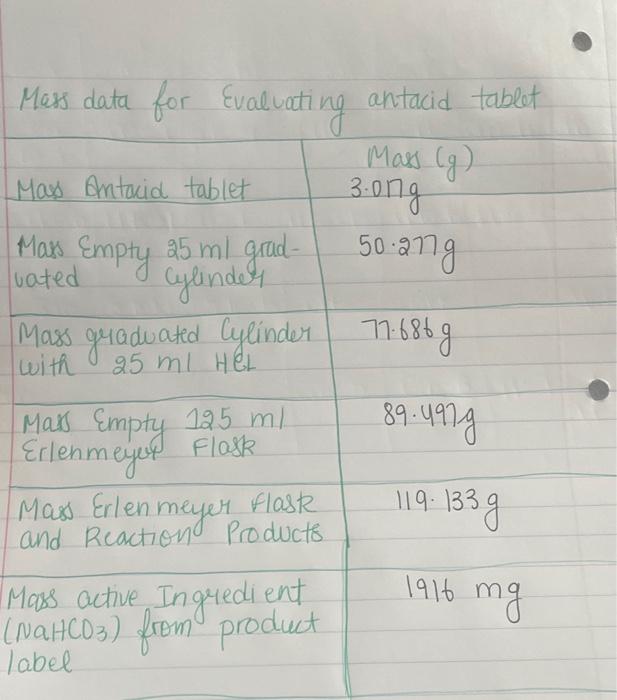 Mass data for Evaluating antacid tablet
Mass (g)
Mass Antacid tablet 3.017g
Mass Empty 25 ml grad- 50.277g
uated Cylinder
Mass graduated Cylinder 77.686 g
with 25 ml HCL
Mass Empty 125 ml 89.497g
Erlenmeyer Flask
Mass Erlenmeyer flask 119.133g
and Reaction Products
Mass active Ingredient 1916 mg
(NaHCO3) from product
label